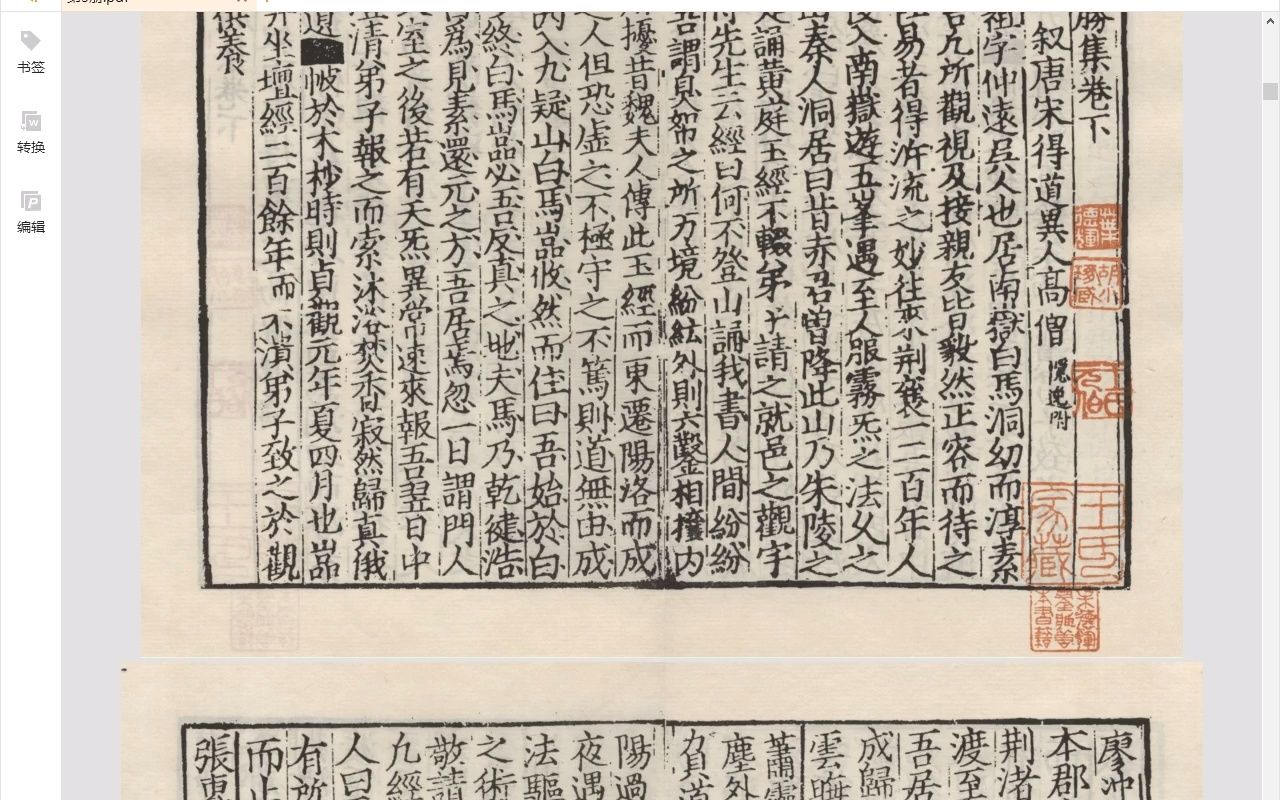 书签
转换
编辑
勝集卷下
叙唐宋得道異人高僧 隱逸附
字仲遠呉人也居南嶽曰馬洞幼而淳素
言凡所觀視及接親友皆毅然正容而待之
易者得泝流之妙往來荆襄一二百年人
入南嶽遊五峯遇至人服霧炁之法久之
秦人洞居曰昔赤君曽降此山乃朱陵之
誦黄庭玉經不輟弟子請之就邑之觀宇
先生云經曰何不登山誦我書人間紛紛
吾謂是帑之所方境紛紜外則六鑿相攘内
擾昔魏夫人傳此玉經而東遷陽洛而成
人但恐虚之不極守之不篤則道無由成
入九疑山白馬嵓攸然而住曰吾始於白
終白馬嵓必吾反真之地夫馬乃乾健浩
爲見素還元之方吾居焉忽一日謂門人
室之後若有天炁異常速來報吾翌日中
清弟子報之而索沐浴焚香寂然歸真俄
帔於木杪時則貞觀元年夏四月也嵓
坐壇經二百餘年而不潰弟子致之於觀
供養
王氏家藏
廖沖
本郡
荆渚
渡至
吾居
成歸
雲晦
蕭
塵外
負道
陽過
夜遇
法驅
之術
敬請
九經
人曰
有所
而止
張惠